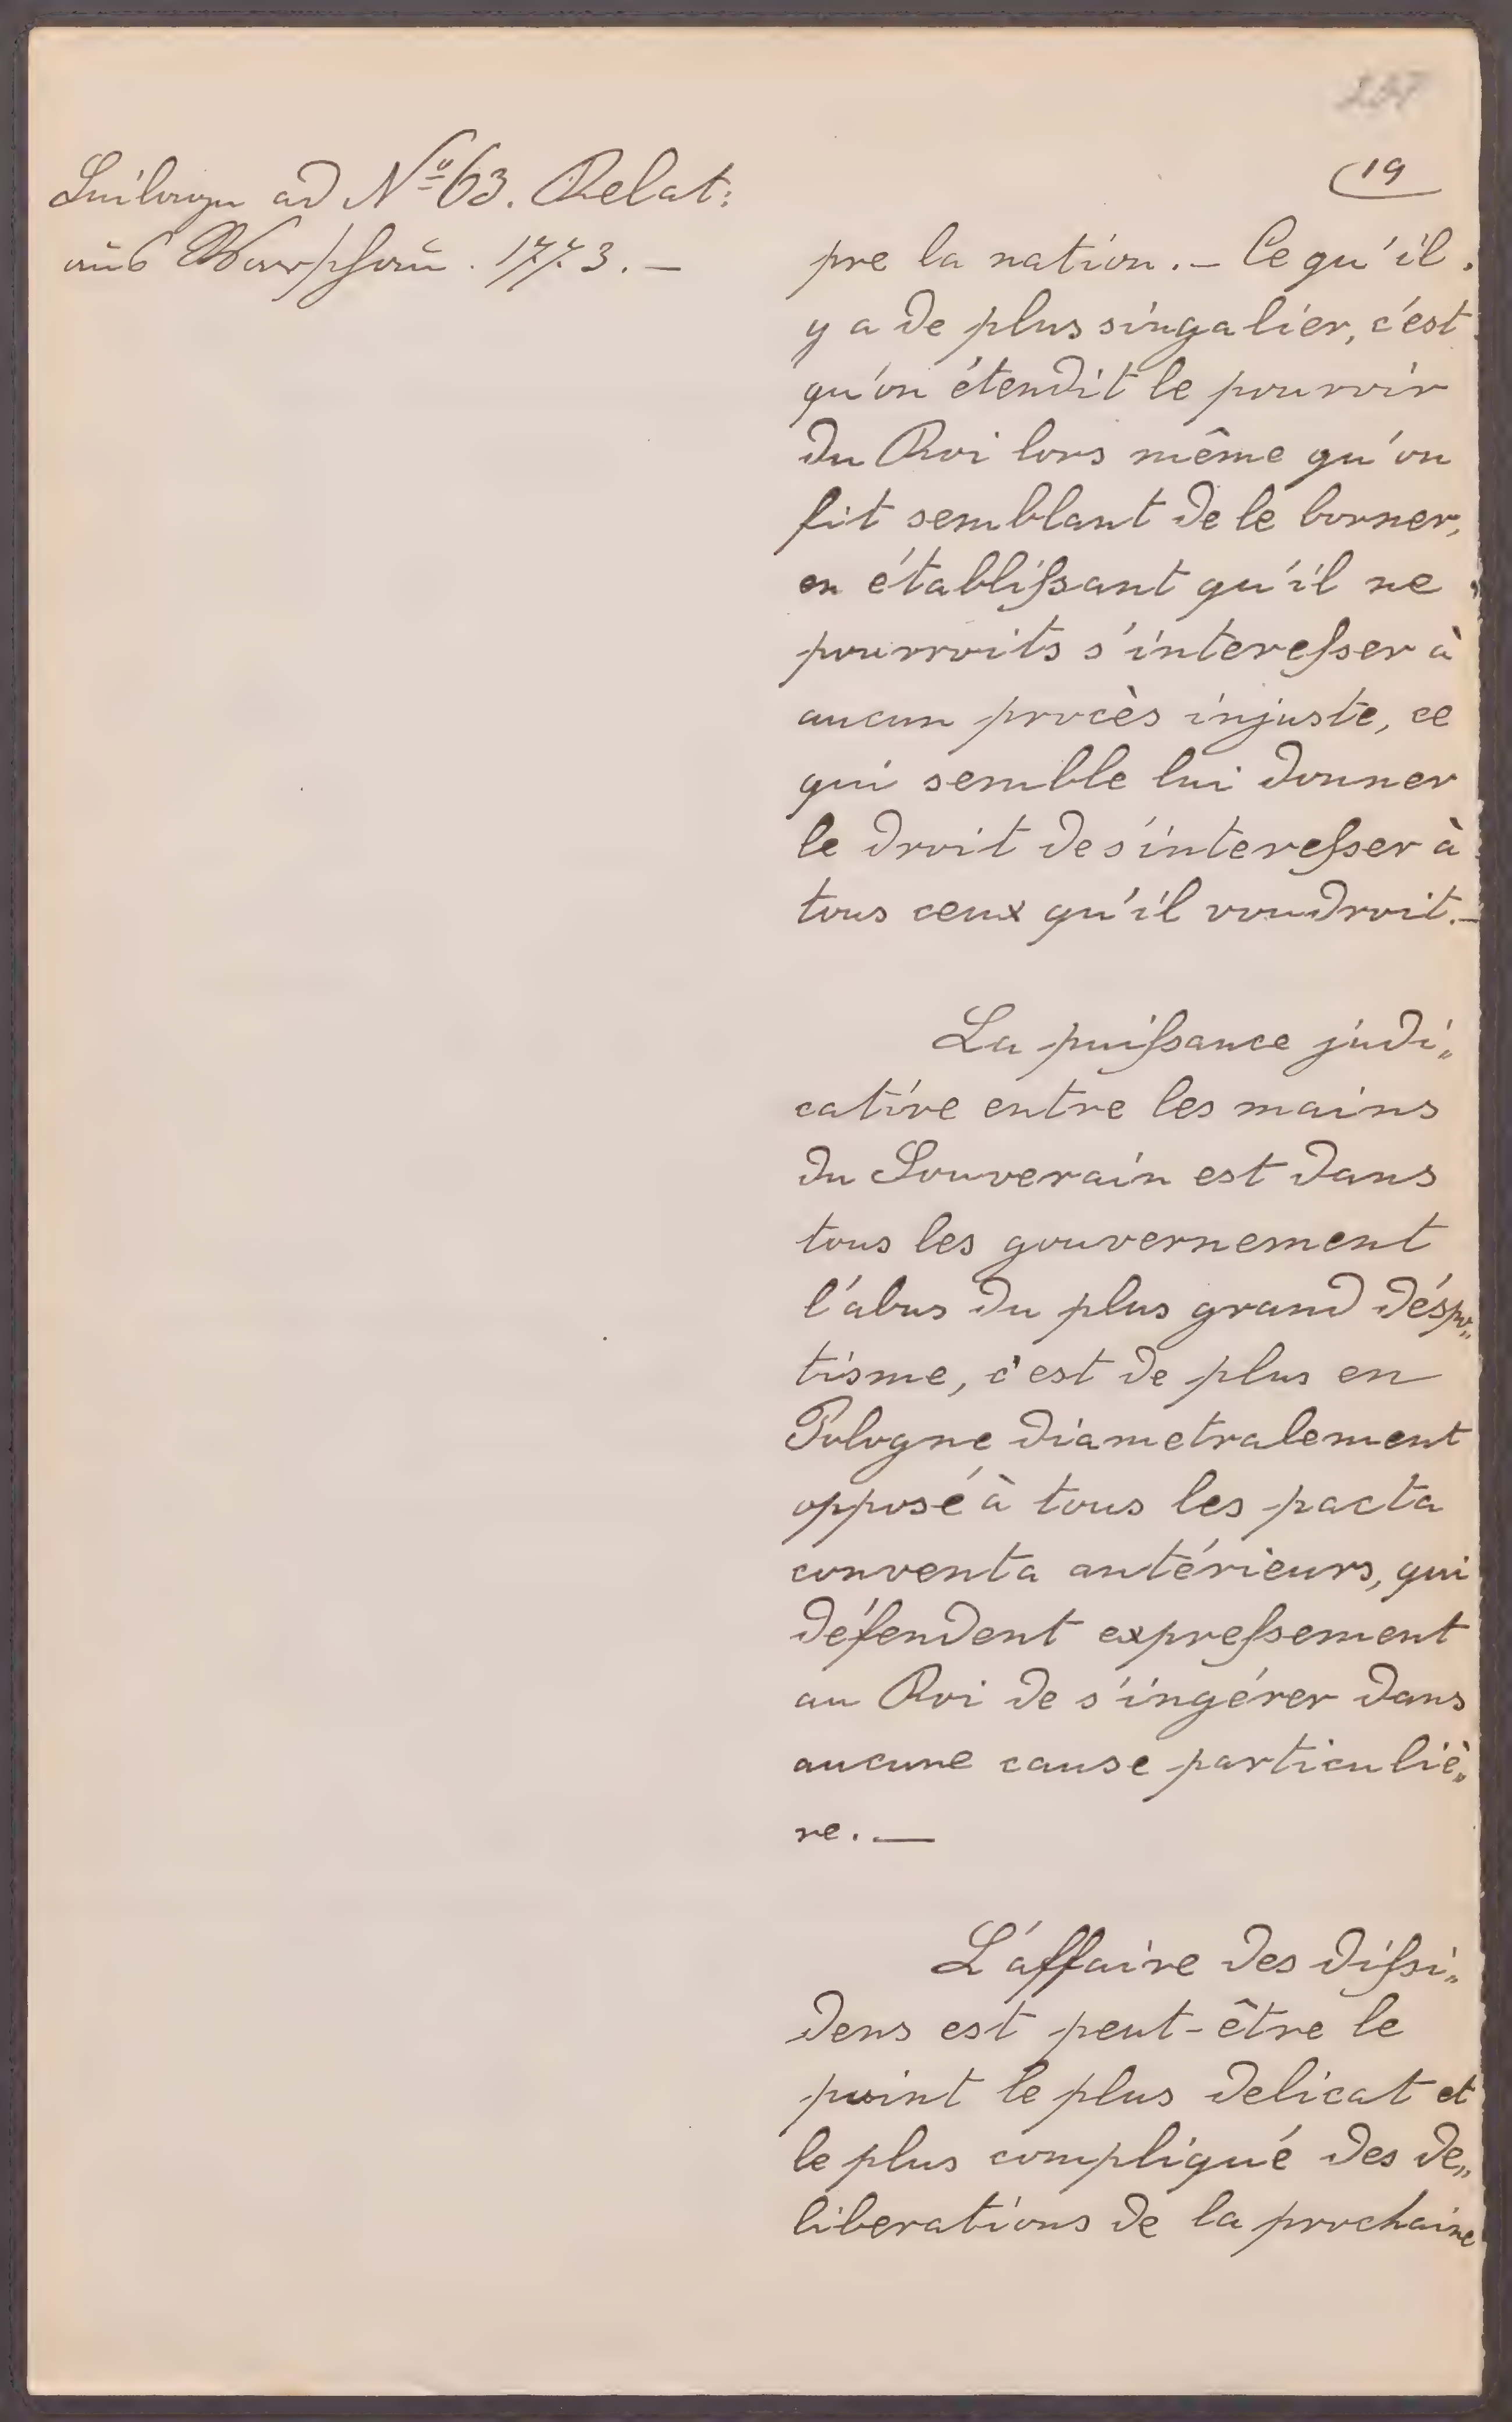 Beilage ad Nº 63. Relat:
aus Warschau. 1773.—
(19
pre la nation.— Ce qu'il
y a de plus singalier, c'est
qu'on étendit le pouvoir
du Roi lors même qu'on
fit semblant de le borner,
en établissant qu'il ne
pourroits s'interesser à
aucun procès injuste, ce
qui semble lui donner
le droit de s'interesser à
tous ceux qu'il voudroit.—
La puissance judi„
cative entre les mains
du Souverain est dans
tous les gouvernement
l'abus du plus grand déspo„
tisme, c'est de plus en
Pologne diametralement
opposé à tous les pacta
conventa antérieurs, qui
défendent expressement
au Roi de s'ingérer dans
aucune cause particuliè„
re.—
L'affaire des dissi„
dens est peut-être le
point le plus delicat et
le plus compliqué des de„
liberations de la prochaine